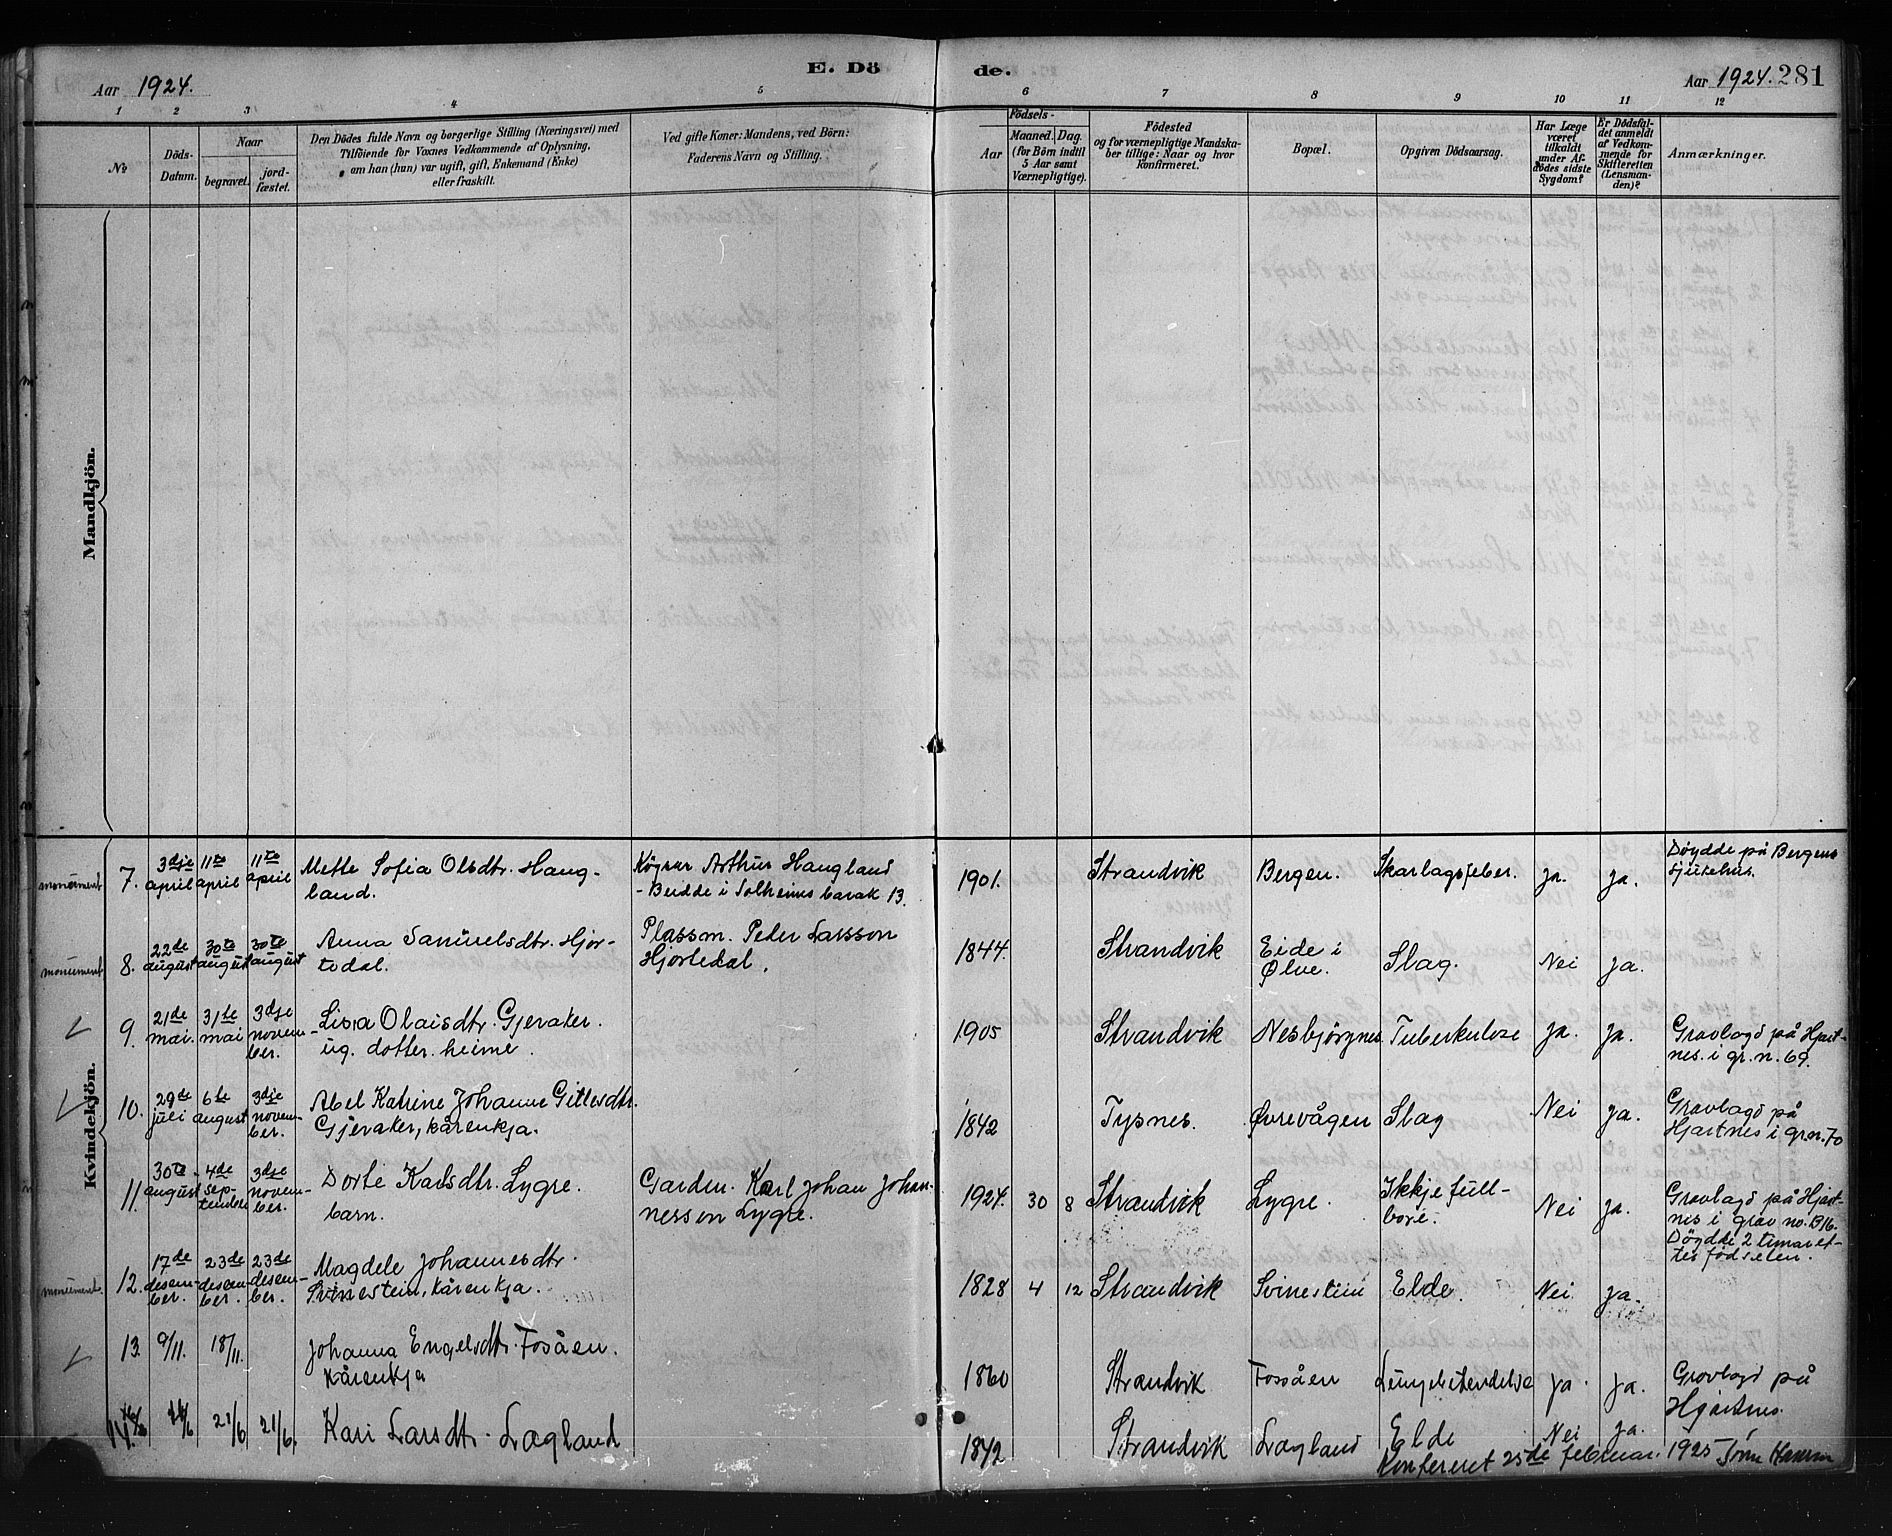 E. Döde.
Aar 1924.
Aar 1924. 281
1 2 3 4 5 6 7 8 9 10 11 12
No.
Döds-Datum.
Naar
begravet.
jord-fæstet.
Den Dödes fulde Navn og borgerlige Stilling (Næringsvei) med
Tilföiende for Voxnes Vedkommende af Oplysning,
om han (hun) var ugift, gift, Enkemand (Enke)
eller fraskilt.
Ved gifte Koner: Mandens, ved Börn:
Faderens Navn og Stilling.
Födsels-
Aar
Maaned. Dag.
(for Börn indtil
5 Aar samt
Værnepligtige).
Födested
og for værnepligtige Mandska-
ber tillige: Naar og hvor
konfirmeret.
Bopæl.
Opgiven Dödsaarsag.
Har Læge
været
tilkaldt
under Af-
dödes sidste
Sygdom?
Er Dödsfal-
det anmeldt
af Vedkom-
mende for
Skifteretten
(Lensman-
den)?
Anmærkninger.
Mandkjön.
Kvindekjön.
monument 7. 3dje april 11te april 11te april Mette Sofia Olsdtr. Haug-
land. Arthur Haugland
- Budde i Solheims barak 13. 1901. Strandvik Bergen. Skarlagsfeber. ja. ja. Döydde på Bergens
sjukehus.
monument 8. 22de august 30te august 30te august Anna Samuelsdtr. Hjor-
tedal. Plassm. Peder Larsson
Hjortedal. 1844. Strandvik Eide i
Ølve. Slag. Nei ja.
9. 21de mai. 31te mai 3dje novem-
ber. Lisa Olaisdtr. Gjeraker.
ug. dotter. heime. 1905 Strandvik Nesbjörgnes. Tuberkulose ja. ja. Gravlagd på Hjart-
nes. i gr. n. 69.
10. 29de juli 6te august 3dje novem-
ber. Abel Katrine Johanne Gitlesdtr.
Gjeraker, kårenkja. 1842 Tysnes. Øvrevågen Slag Nei ja. Gravlagd på
Hjartnes i gr. nr. 70
11. 30te august 4de sep-
tember 3dje novem-
ber. Dorte Karlsdtr. Lygre.
barn. Gardm. Karl Johan Johan-
nesson Lygre. 1924. 30 8 Strandvik Lygre. Ikkje full-
bore. Nei ja. Gravlagd på Hjart-
nes i grav no. B16.
Döydde 2 timar et-
ter födselen.
monument. 12. 17de desem-
ber. 23de desem-
ber. 23de desem-
ber. Magdele Johannesdtr.
Svinestein, kårenkja. 1828 4 12 Strandvik Svinestein Elde. Nei. ja.
13. 9/11. 18/11. Johanna Engelsdtr. Fosåen.
Kårenkja 1860 Strandvik Fossåen ja. ja. Gravlagd på
Hjartnes.
14. 21/6 21/6. Kari Larsdtr. Lægland 1842 Strandvik Lægland Elde Nei ja.
Konfereret 25de februar. 1925